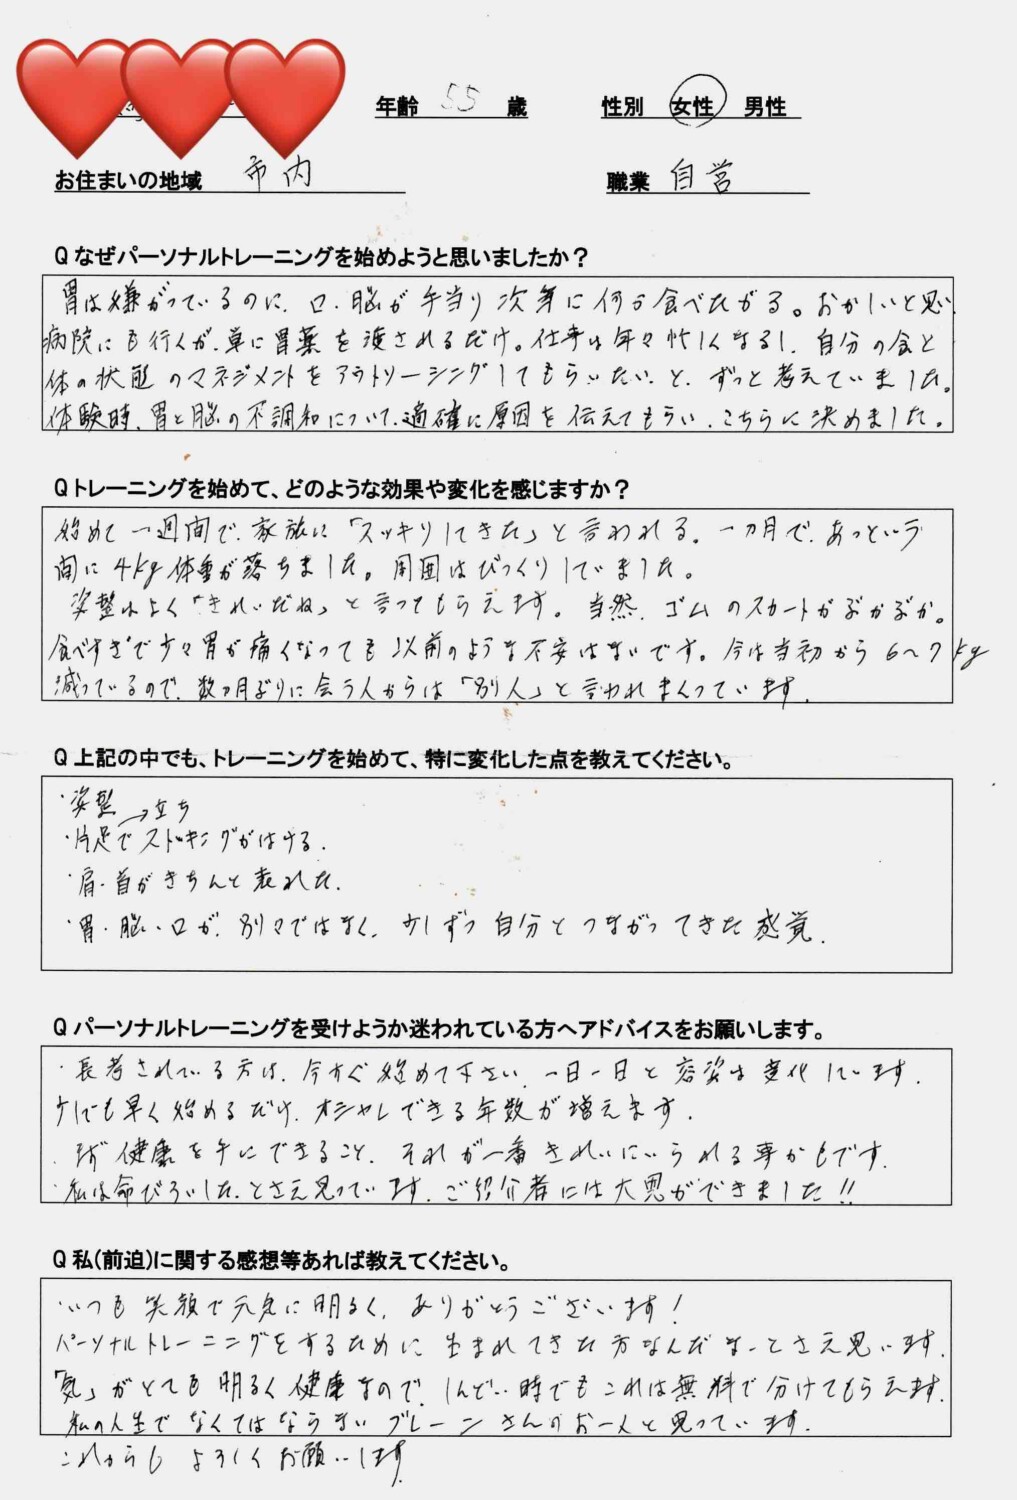 年齢 55 歳 性別 女性 男性
お住まいの地域 市内 職業 自営
Q なぜパーソナルトレーニングを始めようと思いましたか？
胃は嫌がっているのに、口・脳が手当り次第に何か食べたがる。おかしいと思い
病院にも行くが、単に胃薬を渡されるだけ。仕事は年々忙しくなるし、自分の食と
体の状態のマネジメントをアウトソーシングしてもらいたいと、ずっと考えていました。
体験時、胃と脳の不調和について、適確に原因を伝えてもらい、こちらに決めました。
Q トレーニングを始めて、どのような効果や変化を感じますか？
始めて一週間で、家族に「スッキリしてきた」と言われる。一カ月で、あっという
間に4kg体重が落ちました。周囲はびっくりしていました。
姿整はよく「きれいだね」と言ってもらえます。当然、ゴムのスカートがぶかぶか。
食べすぎで少々胃が痛くなっても以前のような不安はないです。今は当初から6〜7kg
減っているので、数ヶ月ぶりに会う人からは「別人」と言われまくっています。
Q 上記の中でも、トレーニングを始めて、特に変化した点を教えてください。
・姿整
→立ち
・片足でストッキングがはける。
・肩・首がきちんと表れた。
・胃・脳・口が、別々ではなく、少しずつ自分とつながってきた感覚。
Q パーソナルトレーニングを受けようか迷われている方へアドバイスをお願いします。
・長考されている方は、今すぐ始めて下さい。一日一日と容姿は変化しています。
少しでも早く始めるだけ、オシャレできる年数が増えます。
・まず健康を手にできること、それが一番きれいにいられる事かもです。
・私は命びろいした、とさえ思っています。ご紹介者には大恩ができました!!
Q 私(前迫)に関する感想等あれば教えてください。
・いつも笑顔で元気に明るく、ありがとうございます!
パーソナルトレーニングをするために生まれてきた方なんだなーとさえ思います。
「気」がとても明るく健康なので、しんどい時でもこれは無料で分けてもらえます。
私の人生でなくてはならないブレーンさんのお一人と思っています。
これからもよろしくお願いします。